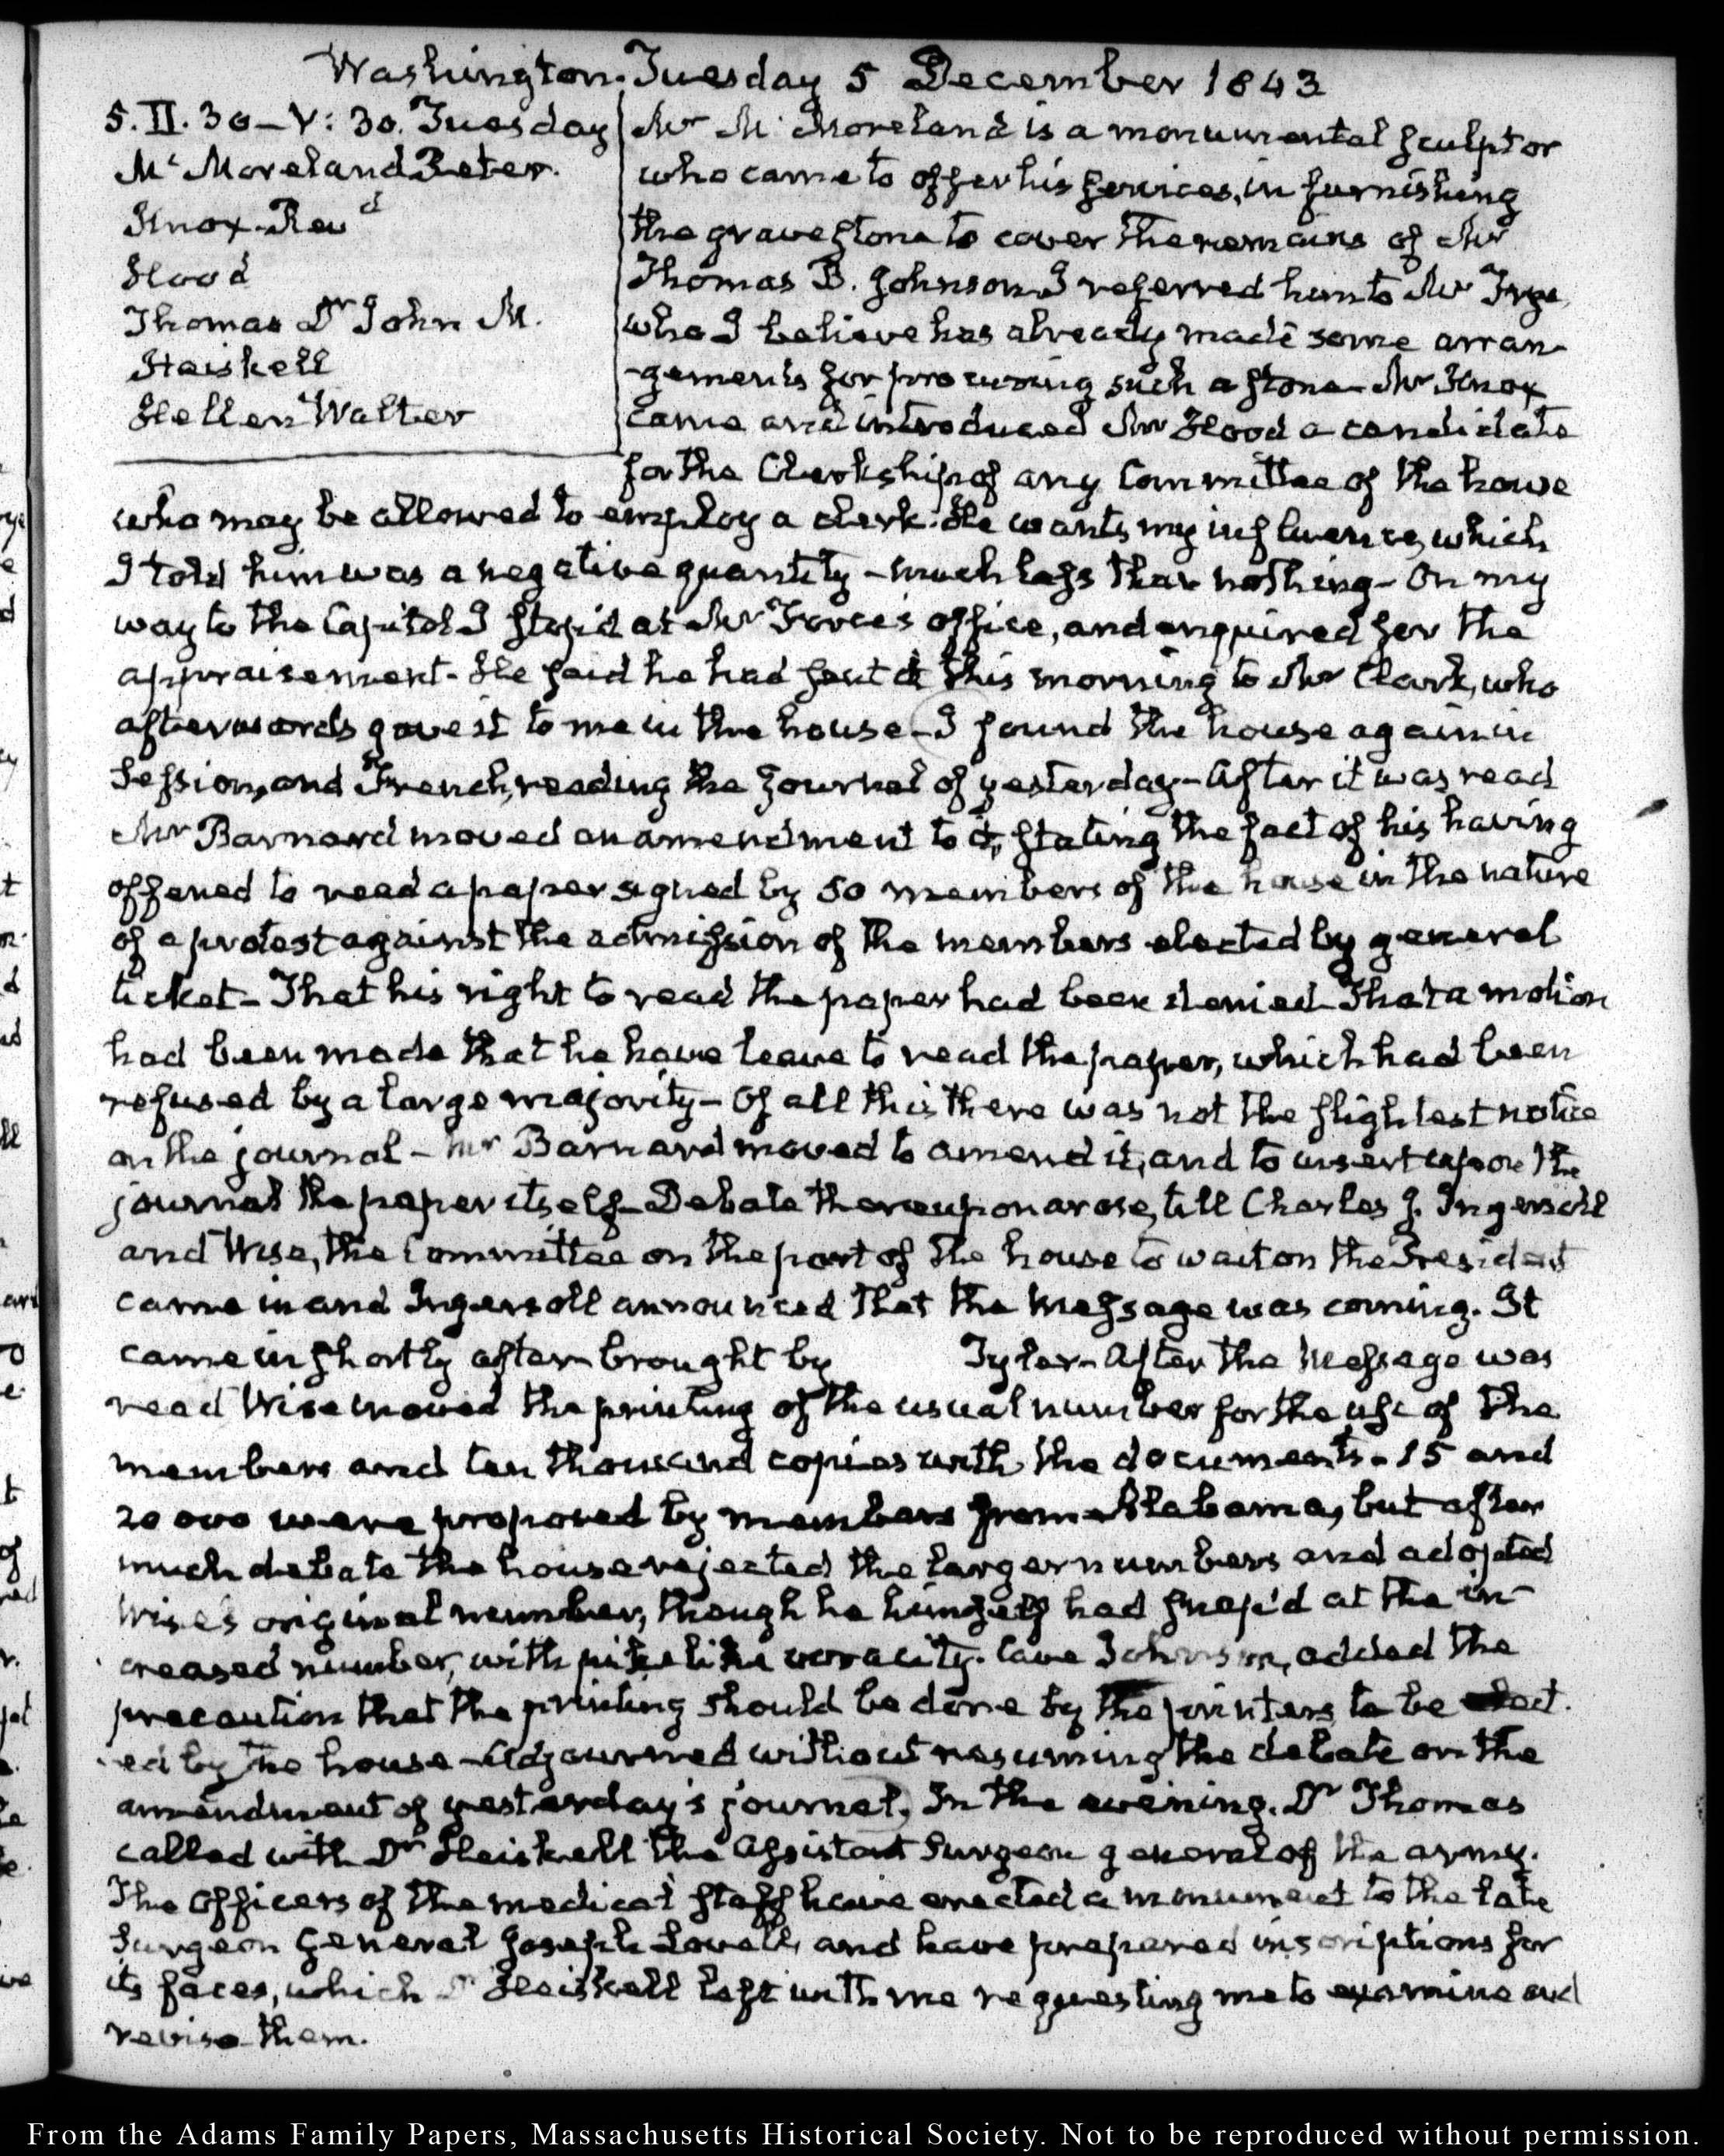 Washington. Tuesday 5 December 1843
5. II. 30 — V: 30. Tuesday
McMoreland Peter.
Knox Revd
Flood
Thomas Dr John M.
Heiskell
Hellen Walter
Mr McMoreland is a monumental sculptor
who came to offer his services, in furnishing
the grave stone to cover the remains of Mr
Thomas B. Johnson I referred him to Mr Frye,
who I believe has already made some arran-
-gements for procuring such a stone — Mr Knox
came and introduced Mr Flood a candidate
for the Clerkship of any Committee of the house
who may be allowed to employ a clerk. He wants my influence, which
I told him was a negative quantity — much less than nothing — On my
way to the Capitol I stop'd at Mr Force's office, and enquired for the
appraisement — He said he had sent it this morning to Mr Clark, who
afterwards gave it to me in the house — I found the house again in
Session, and French, reading the journal of yesterday — After it was read
Mr Barnard moved an amendment to it, stating the fact of his having
offered to read a paper signed by 50 members of the house in the nature
of a protest against the admission of the members elected by general
ticket — That his right to read the paper had been denied — That a motion
had been made that he have leave to read the paper, which had been
refused by a large majority — Of all this there was not the slightest notice
on the journal — Mr Barnard moved to amend it, and to insert upon the
journal the paper itself — Debate thereupon arose, till Charles J. Ingersoll
and Wise, the Committee on the part of the house to wait on the President
came in and Ingersoll announced that the Message was coming. It
came in shortly after brought by Tyler — After the Message was
read Wise moved the printing of the usual number for the use of the
members and ten thousand copies with the documents — 15 and
20 000 were proposed by members from Alabama, but after
much debate the house rejected the larger numbers and adopted
Wise's original number, though he himself had snap'd at the in-
creased number, with pike like voracity. Cave Johnson, added the
precaution that the printing should be done by the printers to be elect-
-ed by the house — Adjourned without resuming the debate on the
amendment of yesterday's journal. In the evening, Dr Thomas
called with Dr Heiskell the Assistant Surgeon general of the army.
The Officers of the medical staff have erected a monument to the late
Surgeon General Joseph Lovell, and have prepared inscriptions for
its faces, which Dr Heiskell left with me requesting me to examine and
revise them.
From the Adams Family Papers, Massachusetts Historical Society. Not to be reproduced without permission.